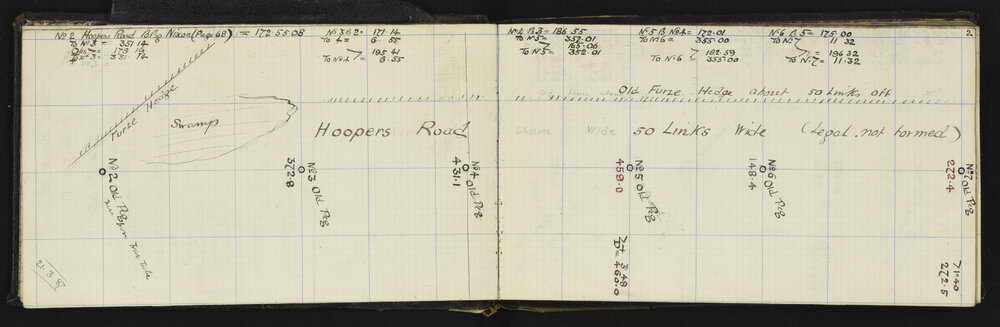 No 2 Hoopers Road B Peg Nixon (Page 68) = 172.55.08
To No 3 = 351 14
Obs = 173 19
To No 3 = 351 14
No 3 B 2 - 171.14
To 4 = 6.55
195.41
To No 4 = 6.55
No 4 B 3 = 186.55
To No 5 = 352.01
165.06
To No 5 = 352.01
No 5 B No 4 = 172.01
To No 6 = 355.00
182.59
To No 6 = 355.00
No 6 B 5 = 175.00
To No 7 11 32
= 196 32
To No 7 = 11.32
2.
Furze Hedge
Old Furze Hedge about 50 Links off
Swamp
Hoopers Road
Chain Wide
50 Links Wide (Legal. not formed)
No 2 Old Peg
372.8
No 3 Old Peg
431.1
No 4 Old Peg
459.0
No 5 Old Peg
148.4
No 6 Old Peg
272.4
No 7 Old Peg
7+ 3.48
D = 460.0
71.40
272.5
21.3.87